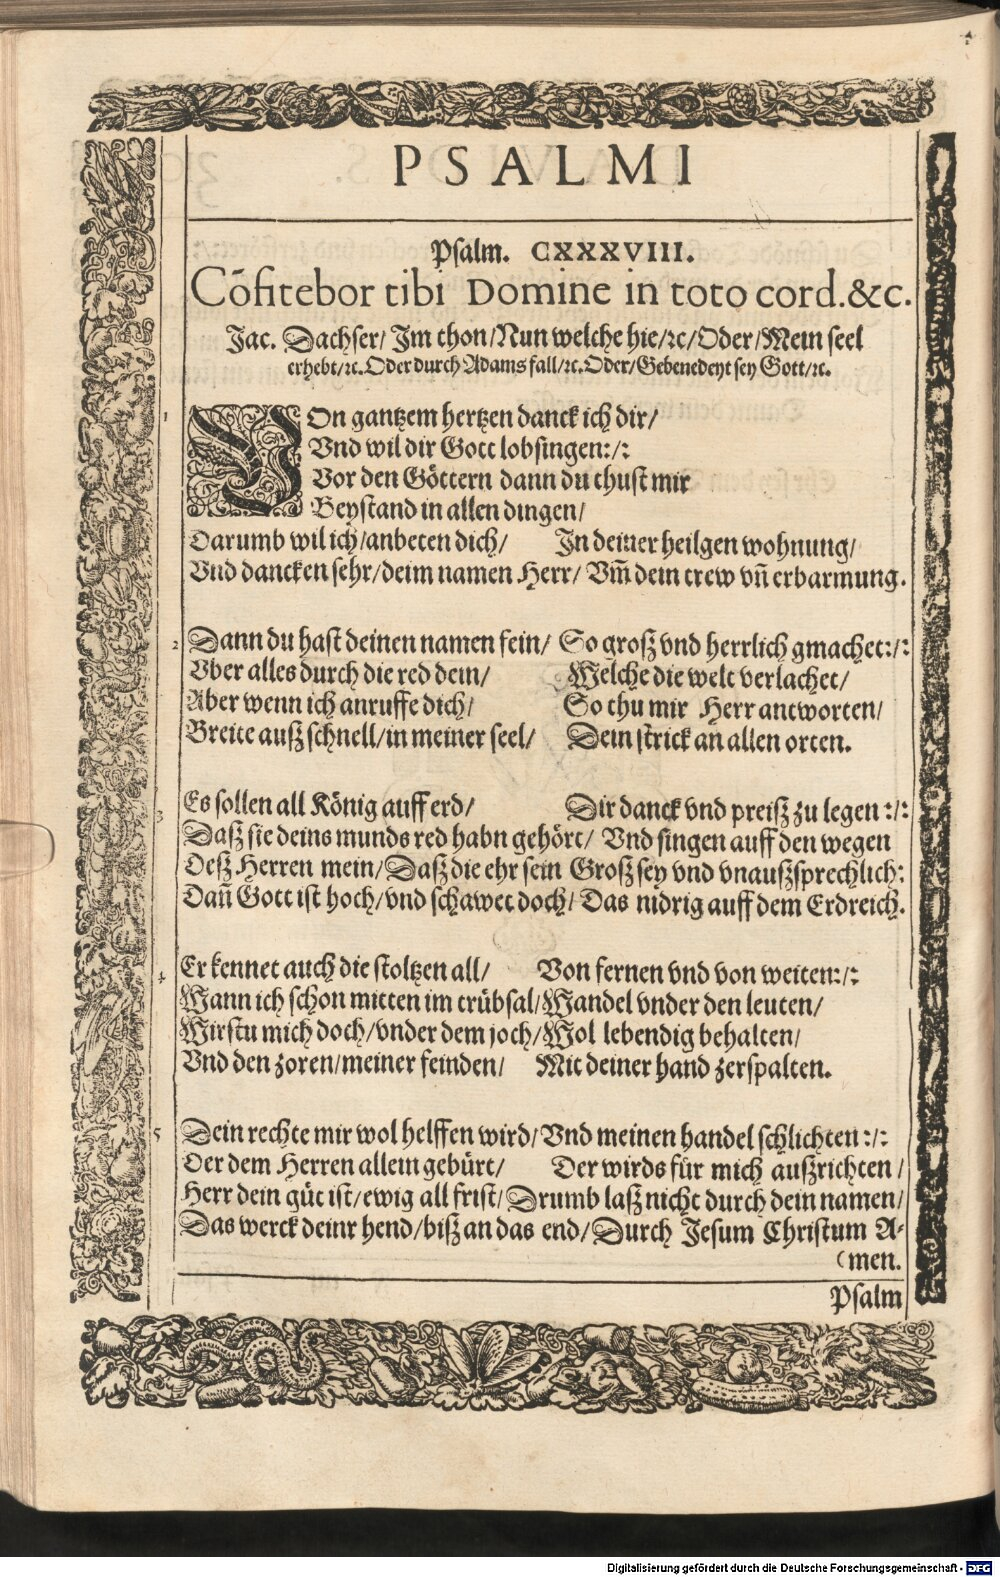 PSALMI
Psalm. CXXXVIII.
Cōfitebor tibi Domine in toto cord.&c.
Jac. Dachser/ Im thon/Nun welche hie/ꝛc/Oder/Mein seel
erhebt/ꝛc.Oder durch Adams fall/ꝛc.Oder/Gebenedeyt sey Gott/ꝛc.
1 VOn gantzem hertzen danck ich dir/
Vnd wil dir Gott lobsingen:/:
Vor den Göttern dann du thust mir
Beystand in allen dingen/
Darumb wil ich/anbeten dich/ In deiner heilgen wohnung/
Vnd dancken sehr/deim namen Herr/ Vm̄ dein trew vn̄ erbarmung.
2 Dann du hast deinen namen fein/ So groß vnd herrlich gmachet:/:
Vber alles durch die red dein/ Welche die welt verlachet/
Aber wenn ich anruffe dich/ So thu mir Herr antworten/
Breite auß schnell/in meiner seel/ Dein strick an allen orten.
3 Es sollen all König auff erd/ Dir danck vnd preiß zu legen:/:
Daß sie deins munds red habn gehört/ Vnd singen auff den wegen
Deß Herren mein/Daß die ehr sein Groß sey vnd vnaußsprechlich:
Dan̄ Gott ist hoch/vnd schawet doch/ Das nidrig auff dem Erdreich.
4 Er kennet auch die stoltzen all/ Von fernen vnd von weiten:/:
Wann ich schon mitten im trübsal/Wandel vnder den leuten/
Wirstu mich doch/vnder dem joch/Wol lebendig behalten/
Vnd den zoren/meiner feinden/ Mit deiner hand zerspalten.
5 Dein rechte mir wol helffen wird/Vnd meinen handel schlichten:/:
Der dem Herren allein gebürt/ Der wirds für mich außrichten/
Herr dein güt ist/ewig all frist/Drumb laß nicht durch dein namen/
Das werck deinr hend/biß an das end/Durch Jesum Christum A-
(men.
Psalm
Digitalisierung gefördert durch die Deutsche Forschungsgemeinschaft - DFG